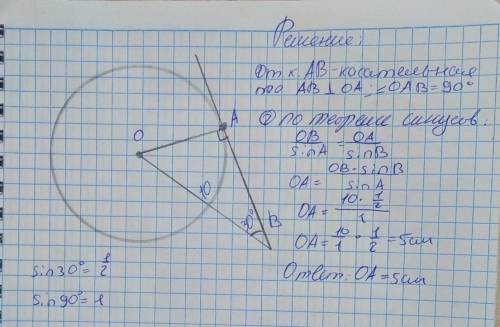 Решение:
От к. AB - касательная
то AB ⊥ OA; ∠OAB = 90°
по теореме синусов.
OB/sinA = OA/sinB
OA = OB·sinB/sinA
OA = (10·1/2)/1
OA = 10/1 · 1/2 = 5см
Ответ: OA = 5см
O
A
10
30°
B
sin30° = 1/2
sin90° = 1